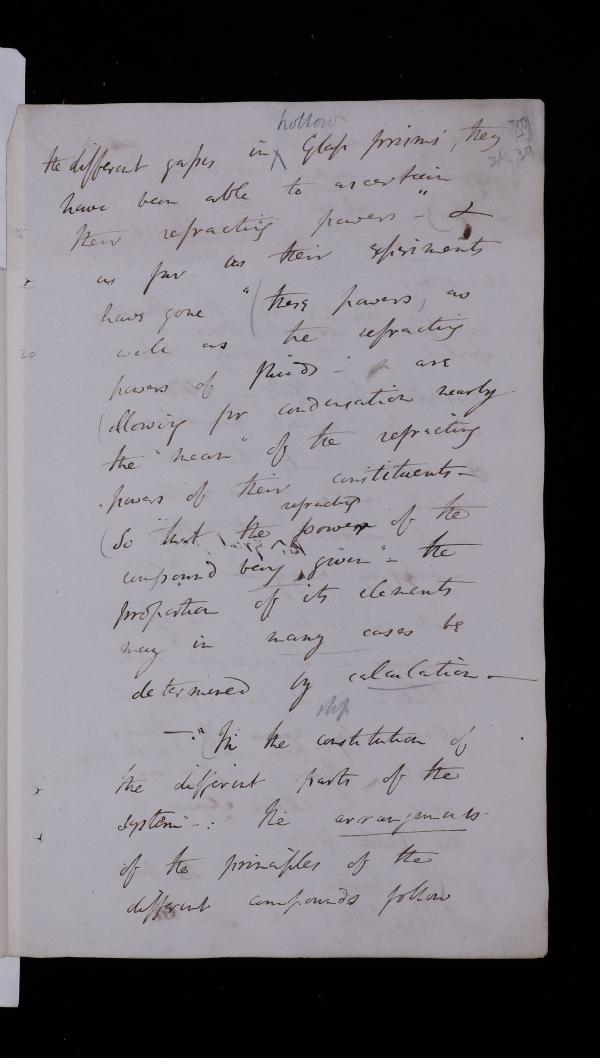 hollow
the different gases in Glass prisms, they
have been able to ascertain
their refracting powers - &
as far as their experiments
have gone "(these powers, as
well as the refracting
powers of fluids - are
(allowing for condensation nearly
the "mean" of the refracting
powers of their constituents -
refracting
(So that the power of the
compound being given" - the
proportion of its elements
may in many cases be
determined by calculation -
- "In the constitution of
the different parts of the
system" - : the arrangements
of the principles of the
different compounds follow
20